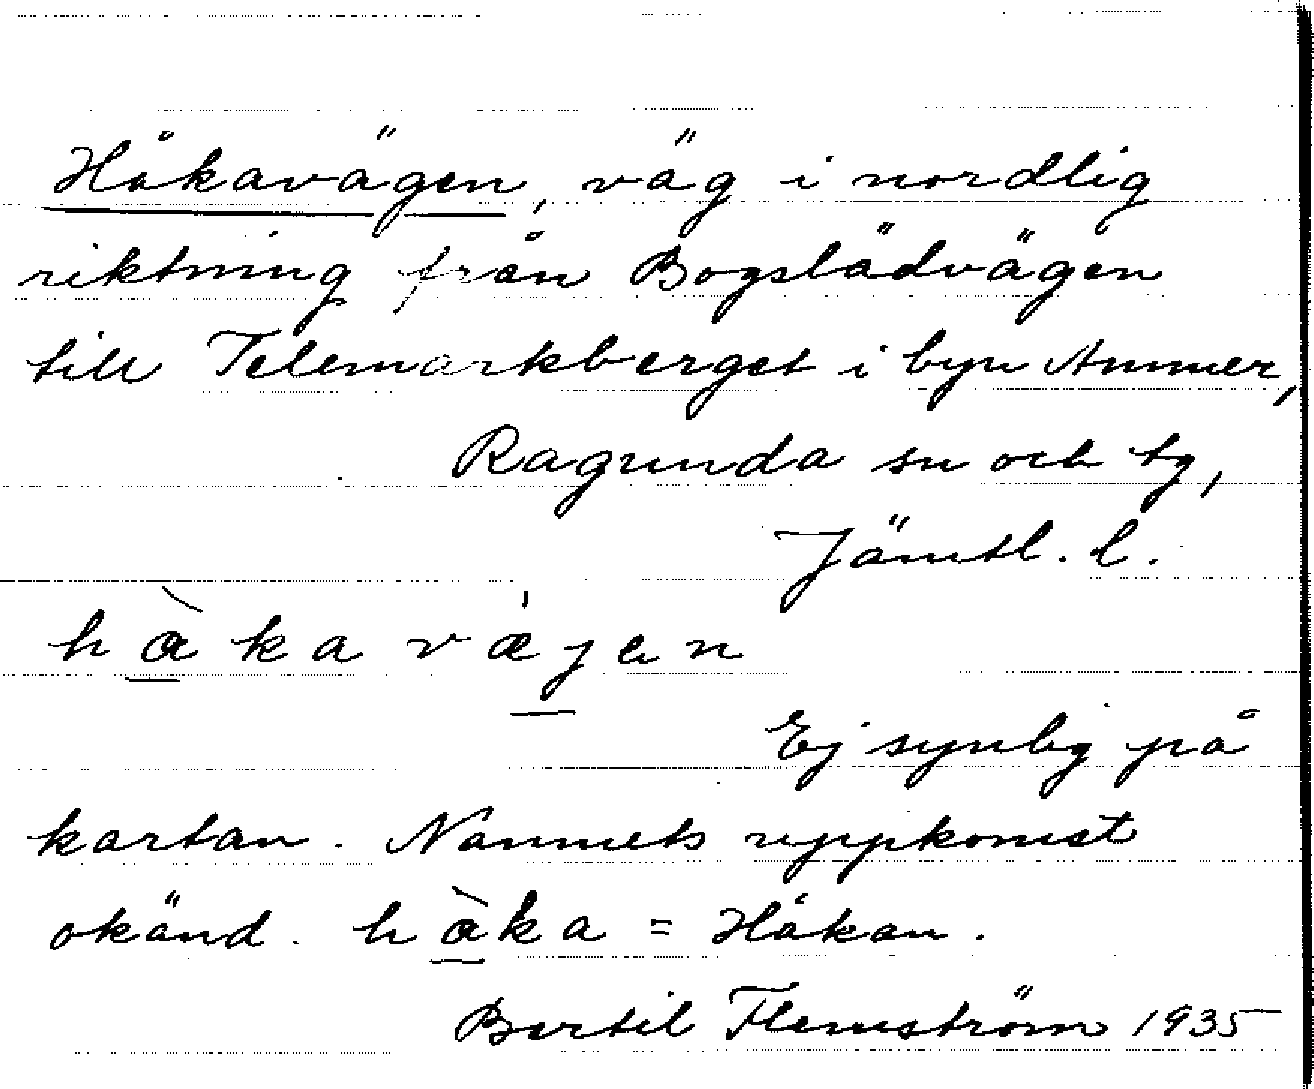 Håkavägen, väg i nordlig
riktning från Bogslädvägen
till Telemarkberget i byn Ammer,
Ragunda sn och tg,
Jämtl. l.
hàkavæjen
Ej synlig på
kartan. Namnets uppkomst
okänd. hàka = Håkan.
Bertil Flemström 1935